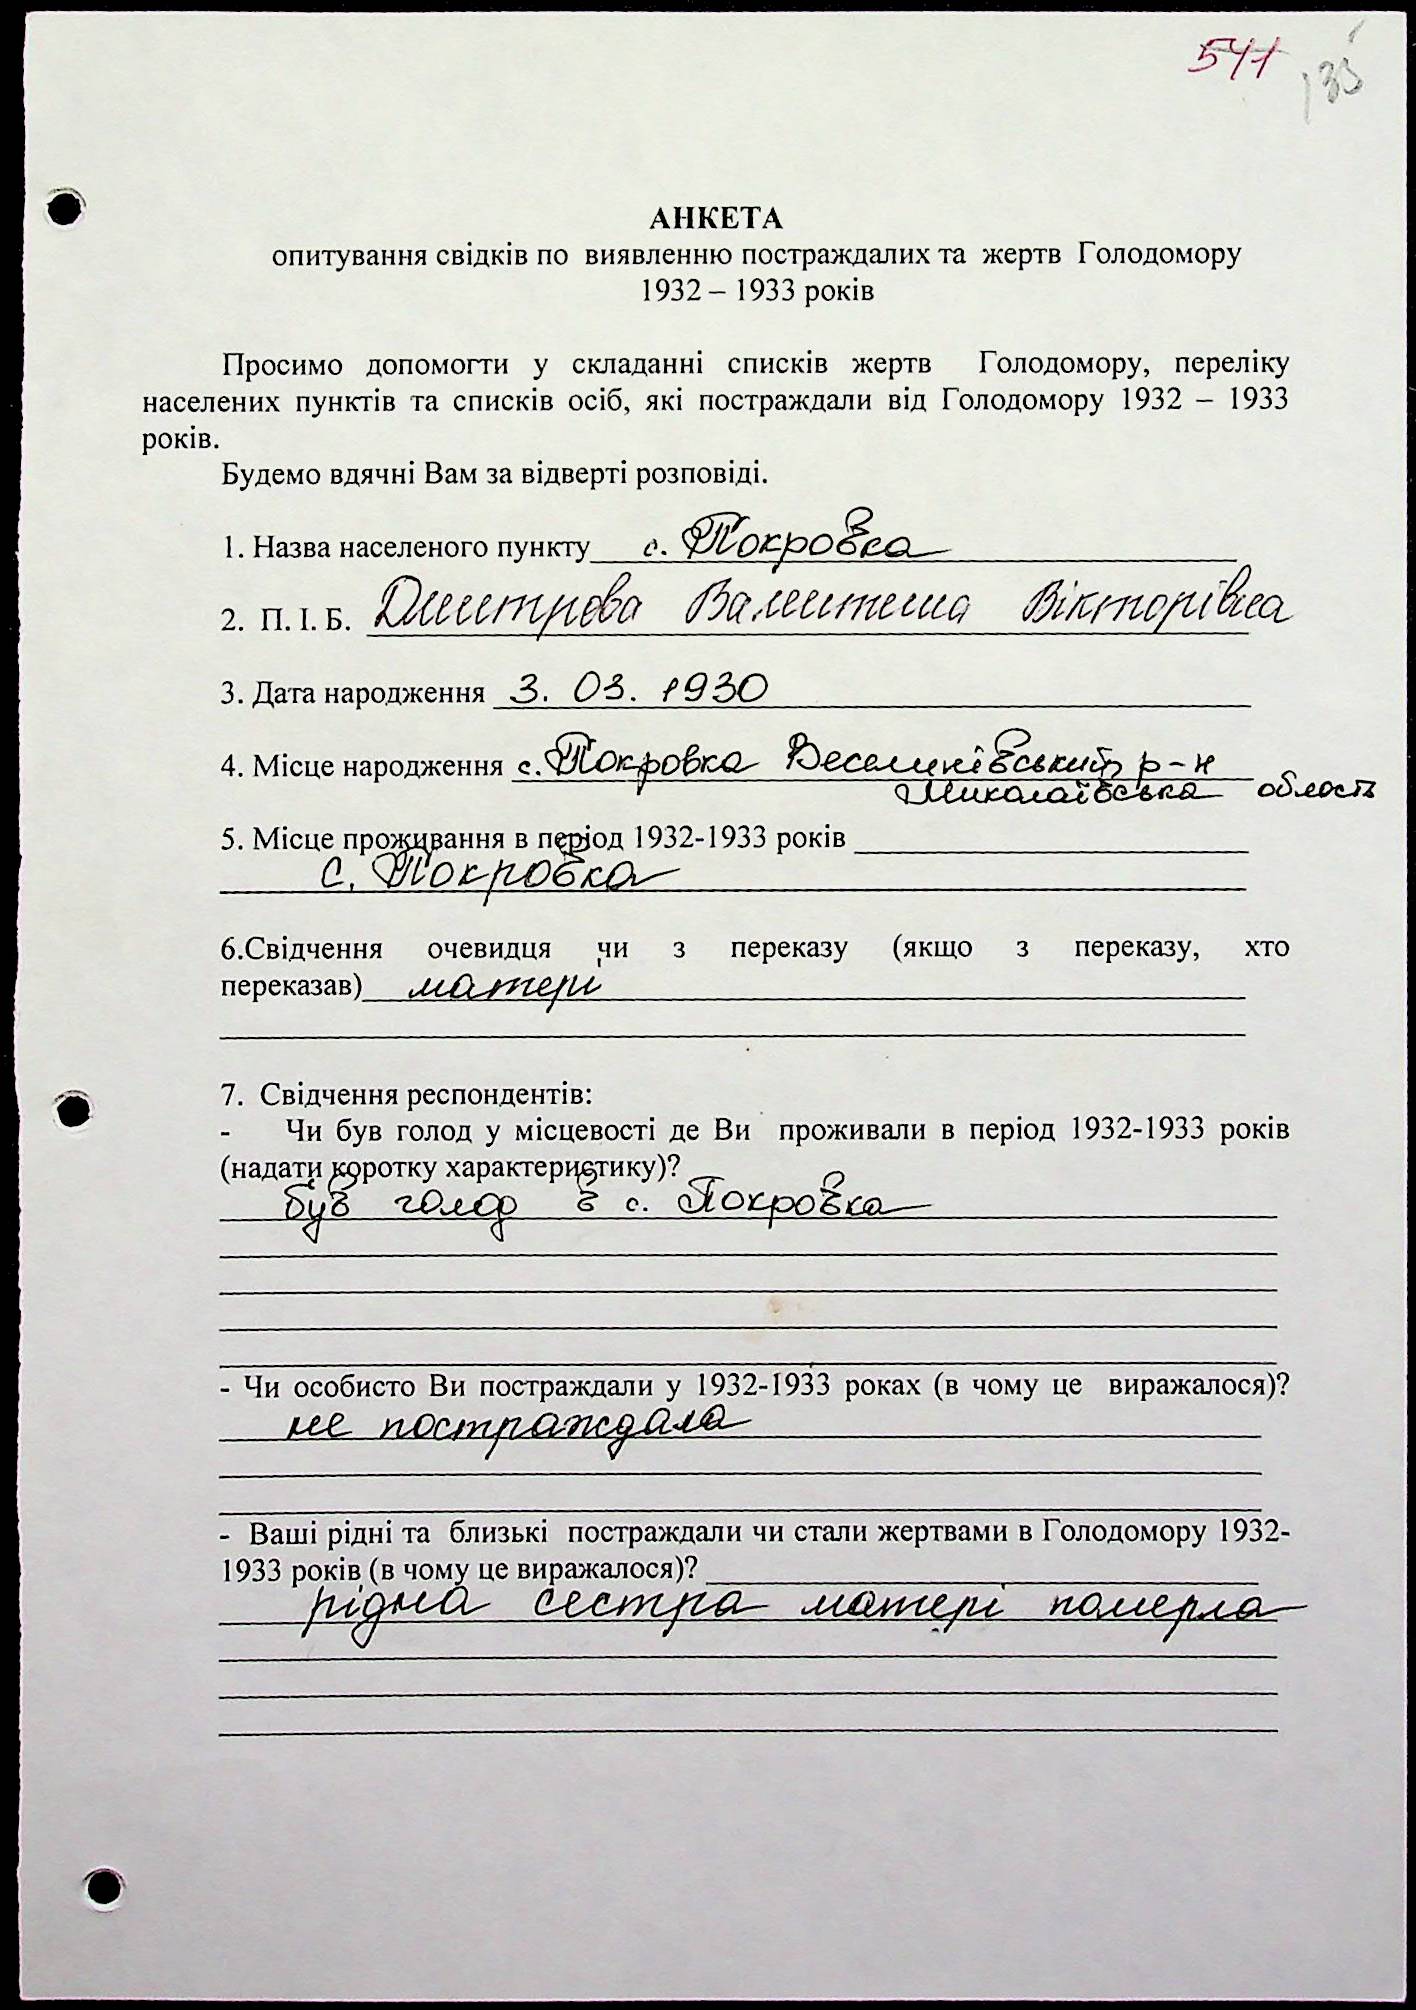 541 135
АНКЕТА
опитування свідків по виявленню постраждалих та жертв Голодомору
1932 – 1933 років
Просимо допомогти у складанні списків жертв Голодомору, переліку
населених пунктів та списків осіб, які постраждали від Голодомору 1932 – 1933
років.
Будемо вдячні Вам за відверті розповіді.
1. Назва населеного пункту с. Покровка
2. П. І. Б. Дмитрова Валентина Вікторівна
3. Дата народження 3. 03. 1930
4. Місце народження с. Покровка Веселинівський р-н
Миколаївська область
5. Місце проживання в період 1932-1933 років
с. Покровка
6.Свідчення очевидця чи з переказу (якщо з переказу, хто
переказав) матері
7. Свідчення респондентів:
- Чи був голод у місцевості де Ви проживали в період 1932-1933 років
(надати коротку характеристику)?
був голод в с. Покровка
- Чи особисто Ви постраждали у 1932-1933 роках (в чому це виражалося)?
не постраждала
- Ваші рідні та близькі постраждали чи стали жертвами в Голодомору 1932-
1933 років (в чому це виражалося)?
рідна сестра матері померла